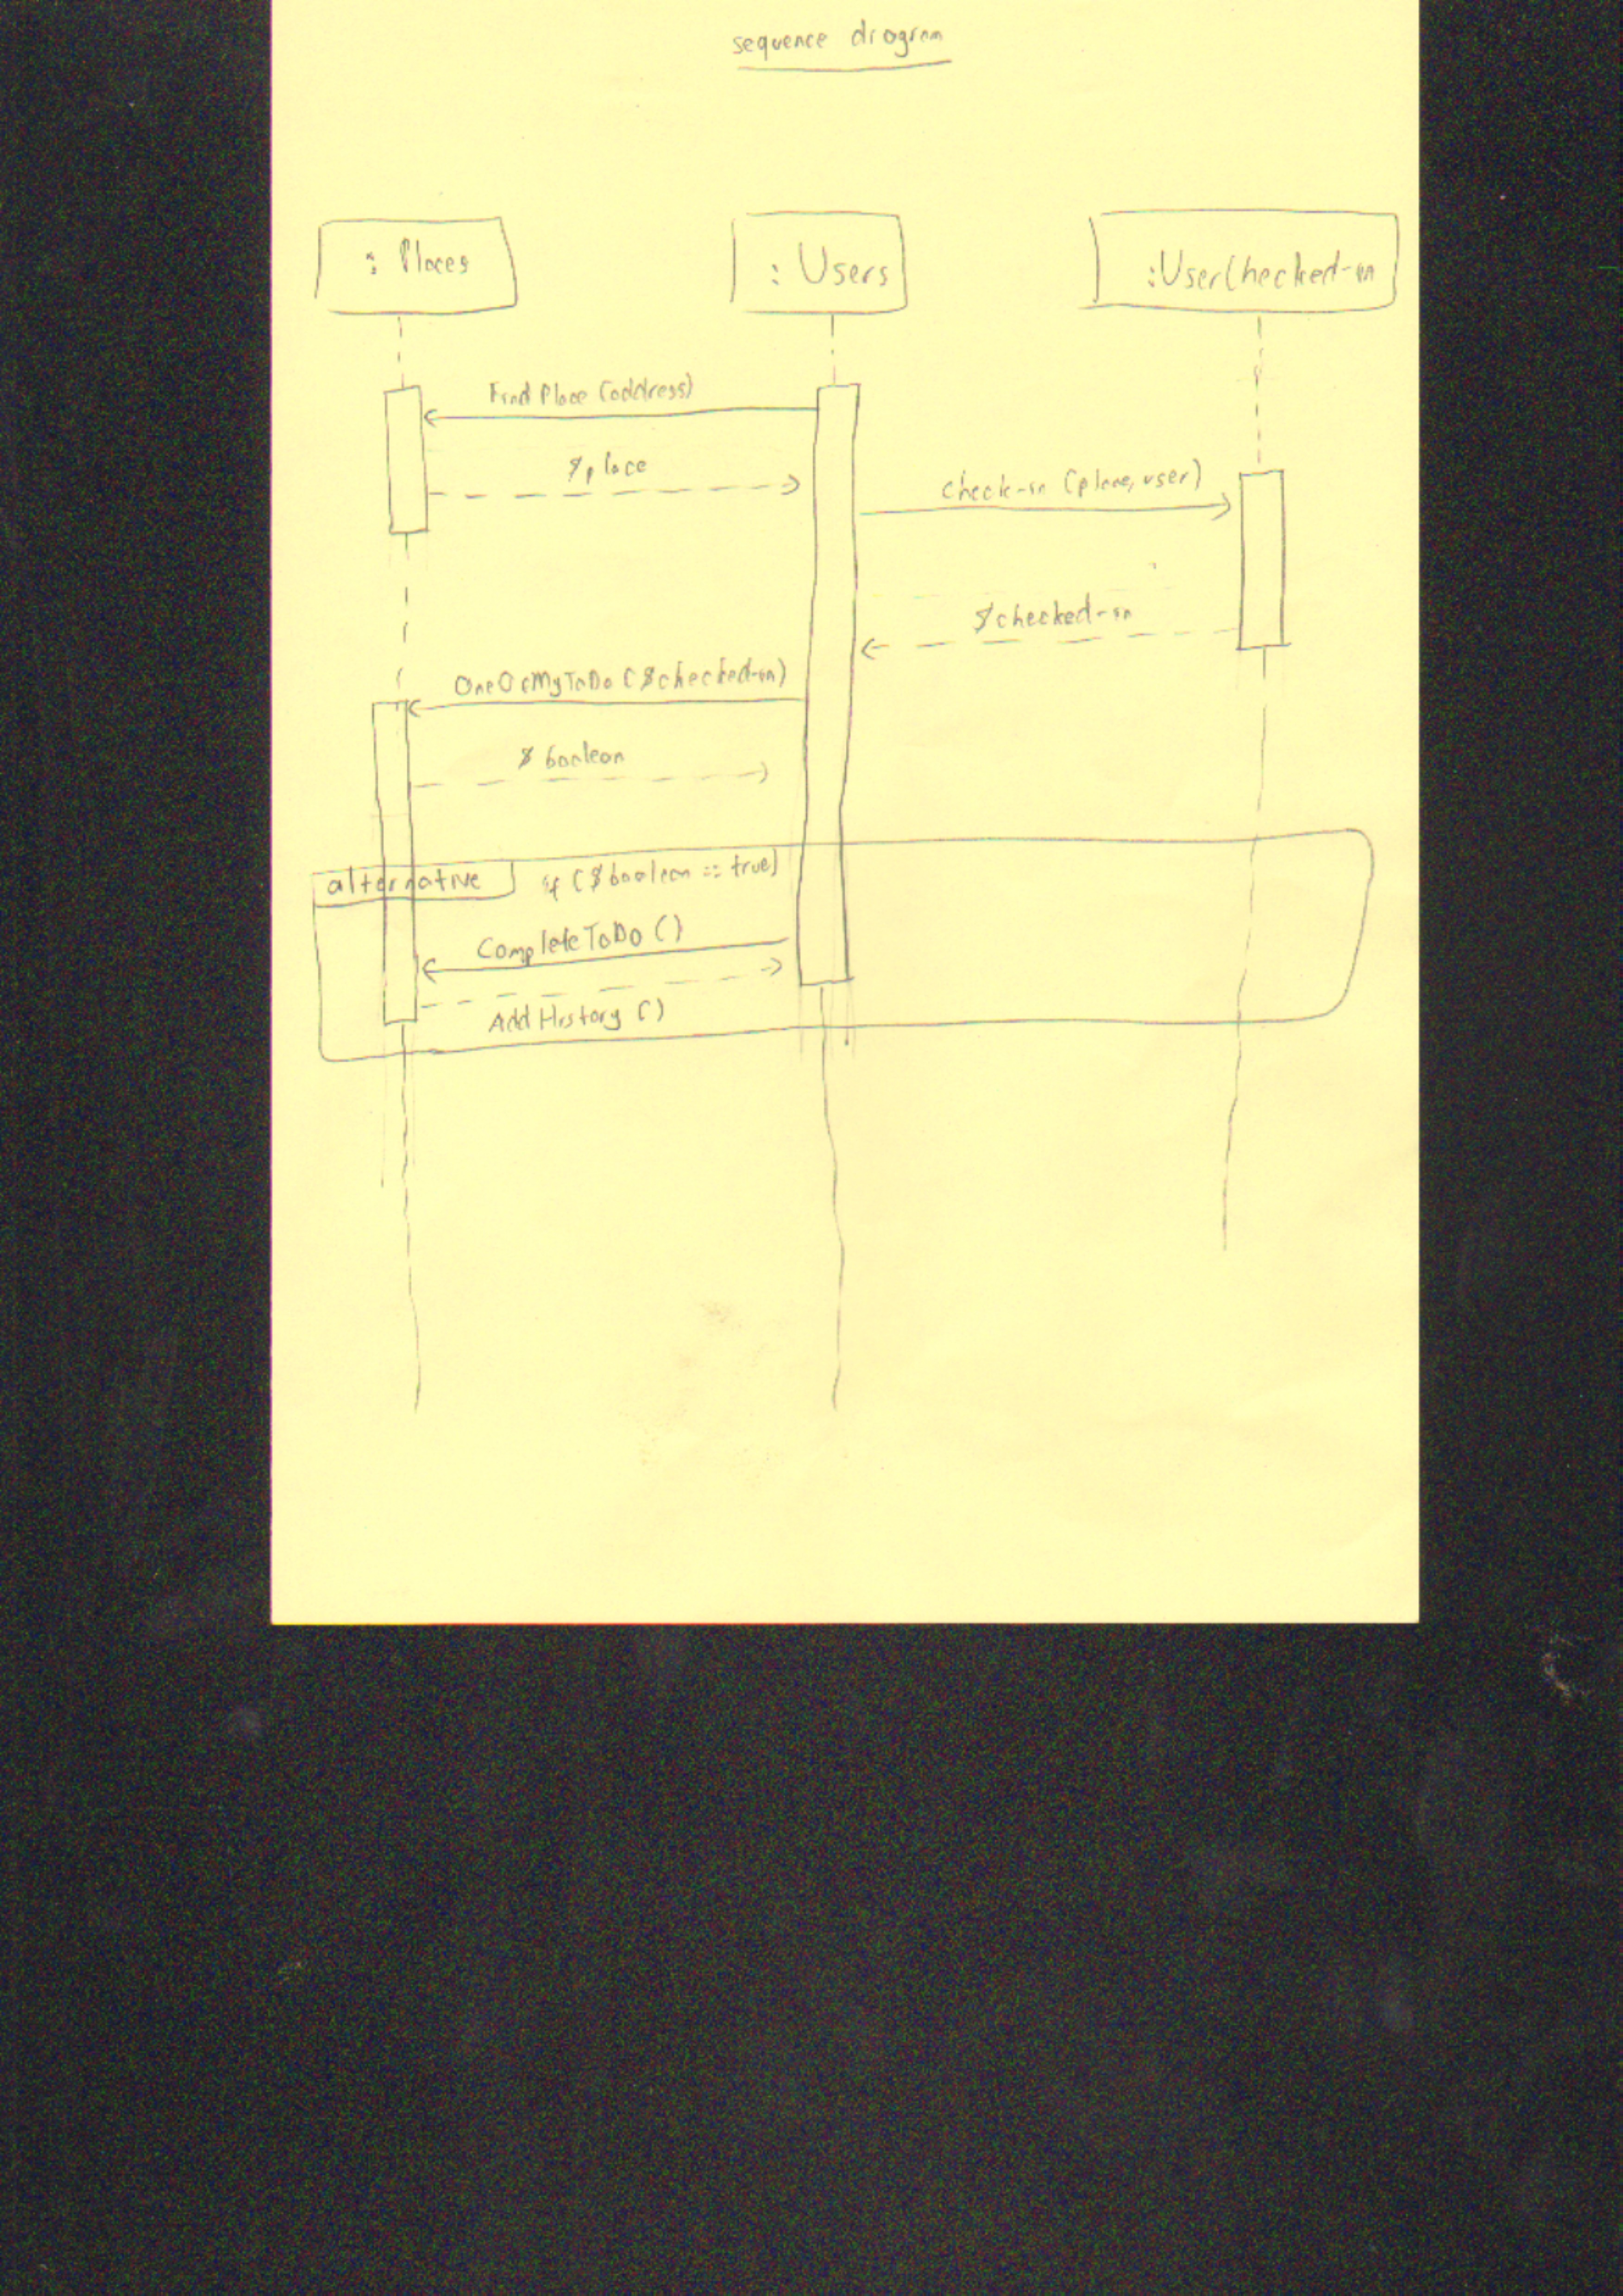 sequence diagram
: Places
: Users
:UserChecked-in
Find Place (address)
$place
check-in (place, user)
$checked-in
OneOfMyToDo ($checked-in)
$ boolean
alternative
if ($boolean == true)
CompleteToDo ()
Add History ()